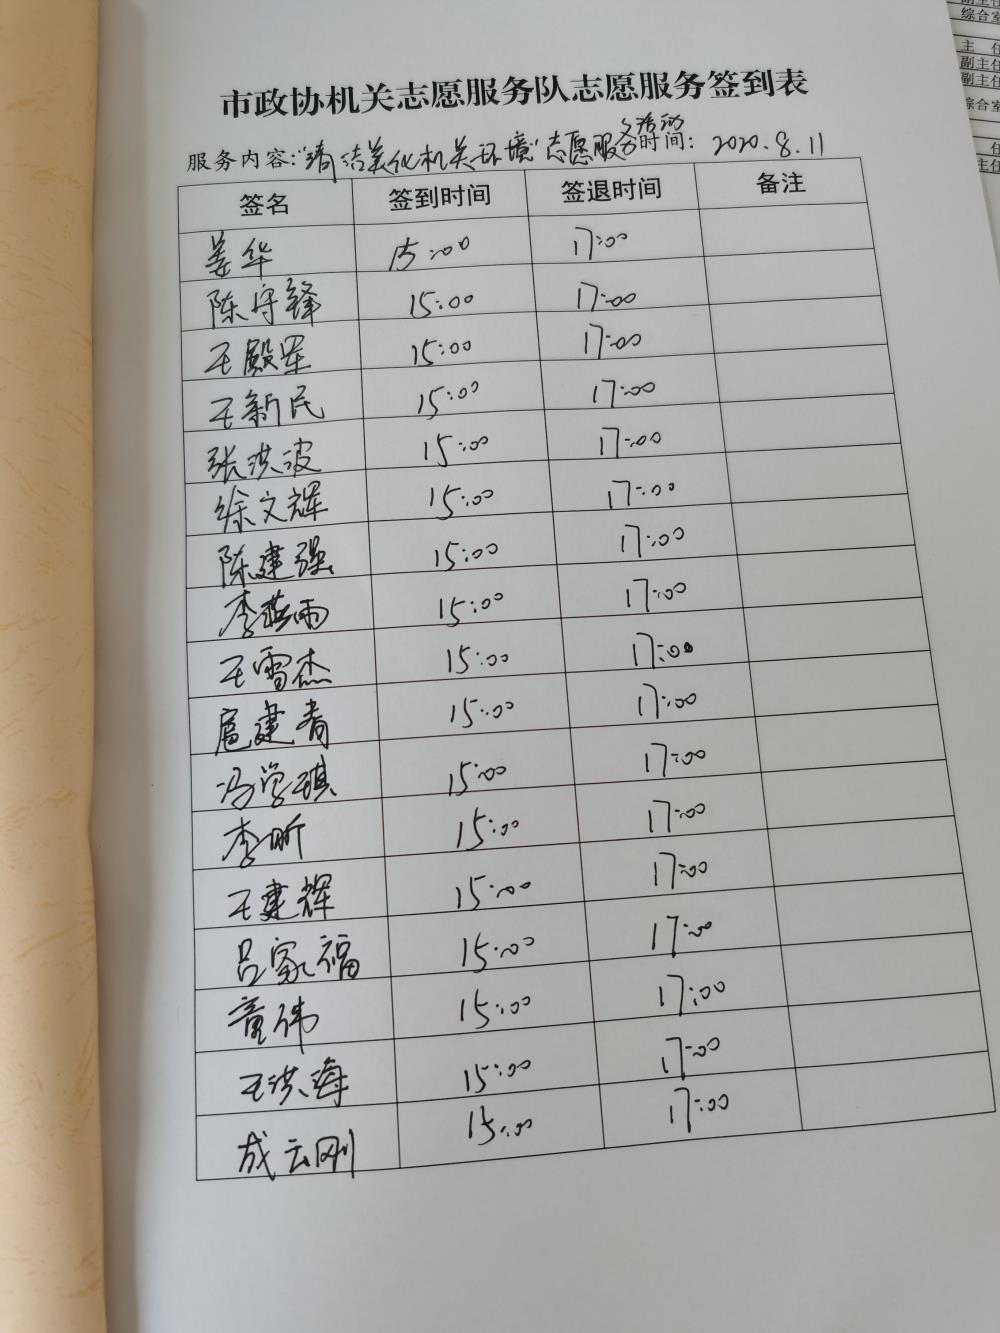 副主任
综合室
主 任
副主任
副主任
综合室
任
主任
市政协机关志愿服务队志愿服务签到表
服务内容:"清洁美化机关环境"志愿服务活动 时间: 2020.8.11
签名 签到时间 签退时间 备注
姜华 15:00 17:00
陈守锋 15:00 17:00
王殿军 15:00 17:00
王新民 15:00 17:00
张洪波 15:00 17:00
徐文辉 15:00 17:00
陈建强 15:00 17:00
李燕雨 15:00 17:00
王雪杰 15:00 17:00
扈建青 15:00 17:00
冯学琪 15:00 17:00
李昕 15:00 17:00
王建辉 15:00 17:00
吕家福 15:00 17:00
童伟 15:00 17:00
王洪海 15:00 17:00
成云刚 15:00 17:00